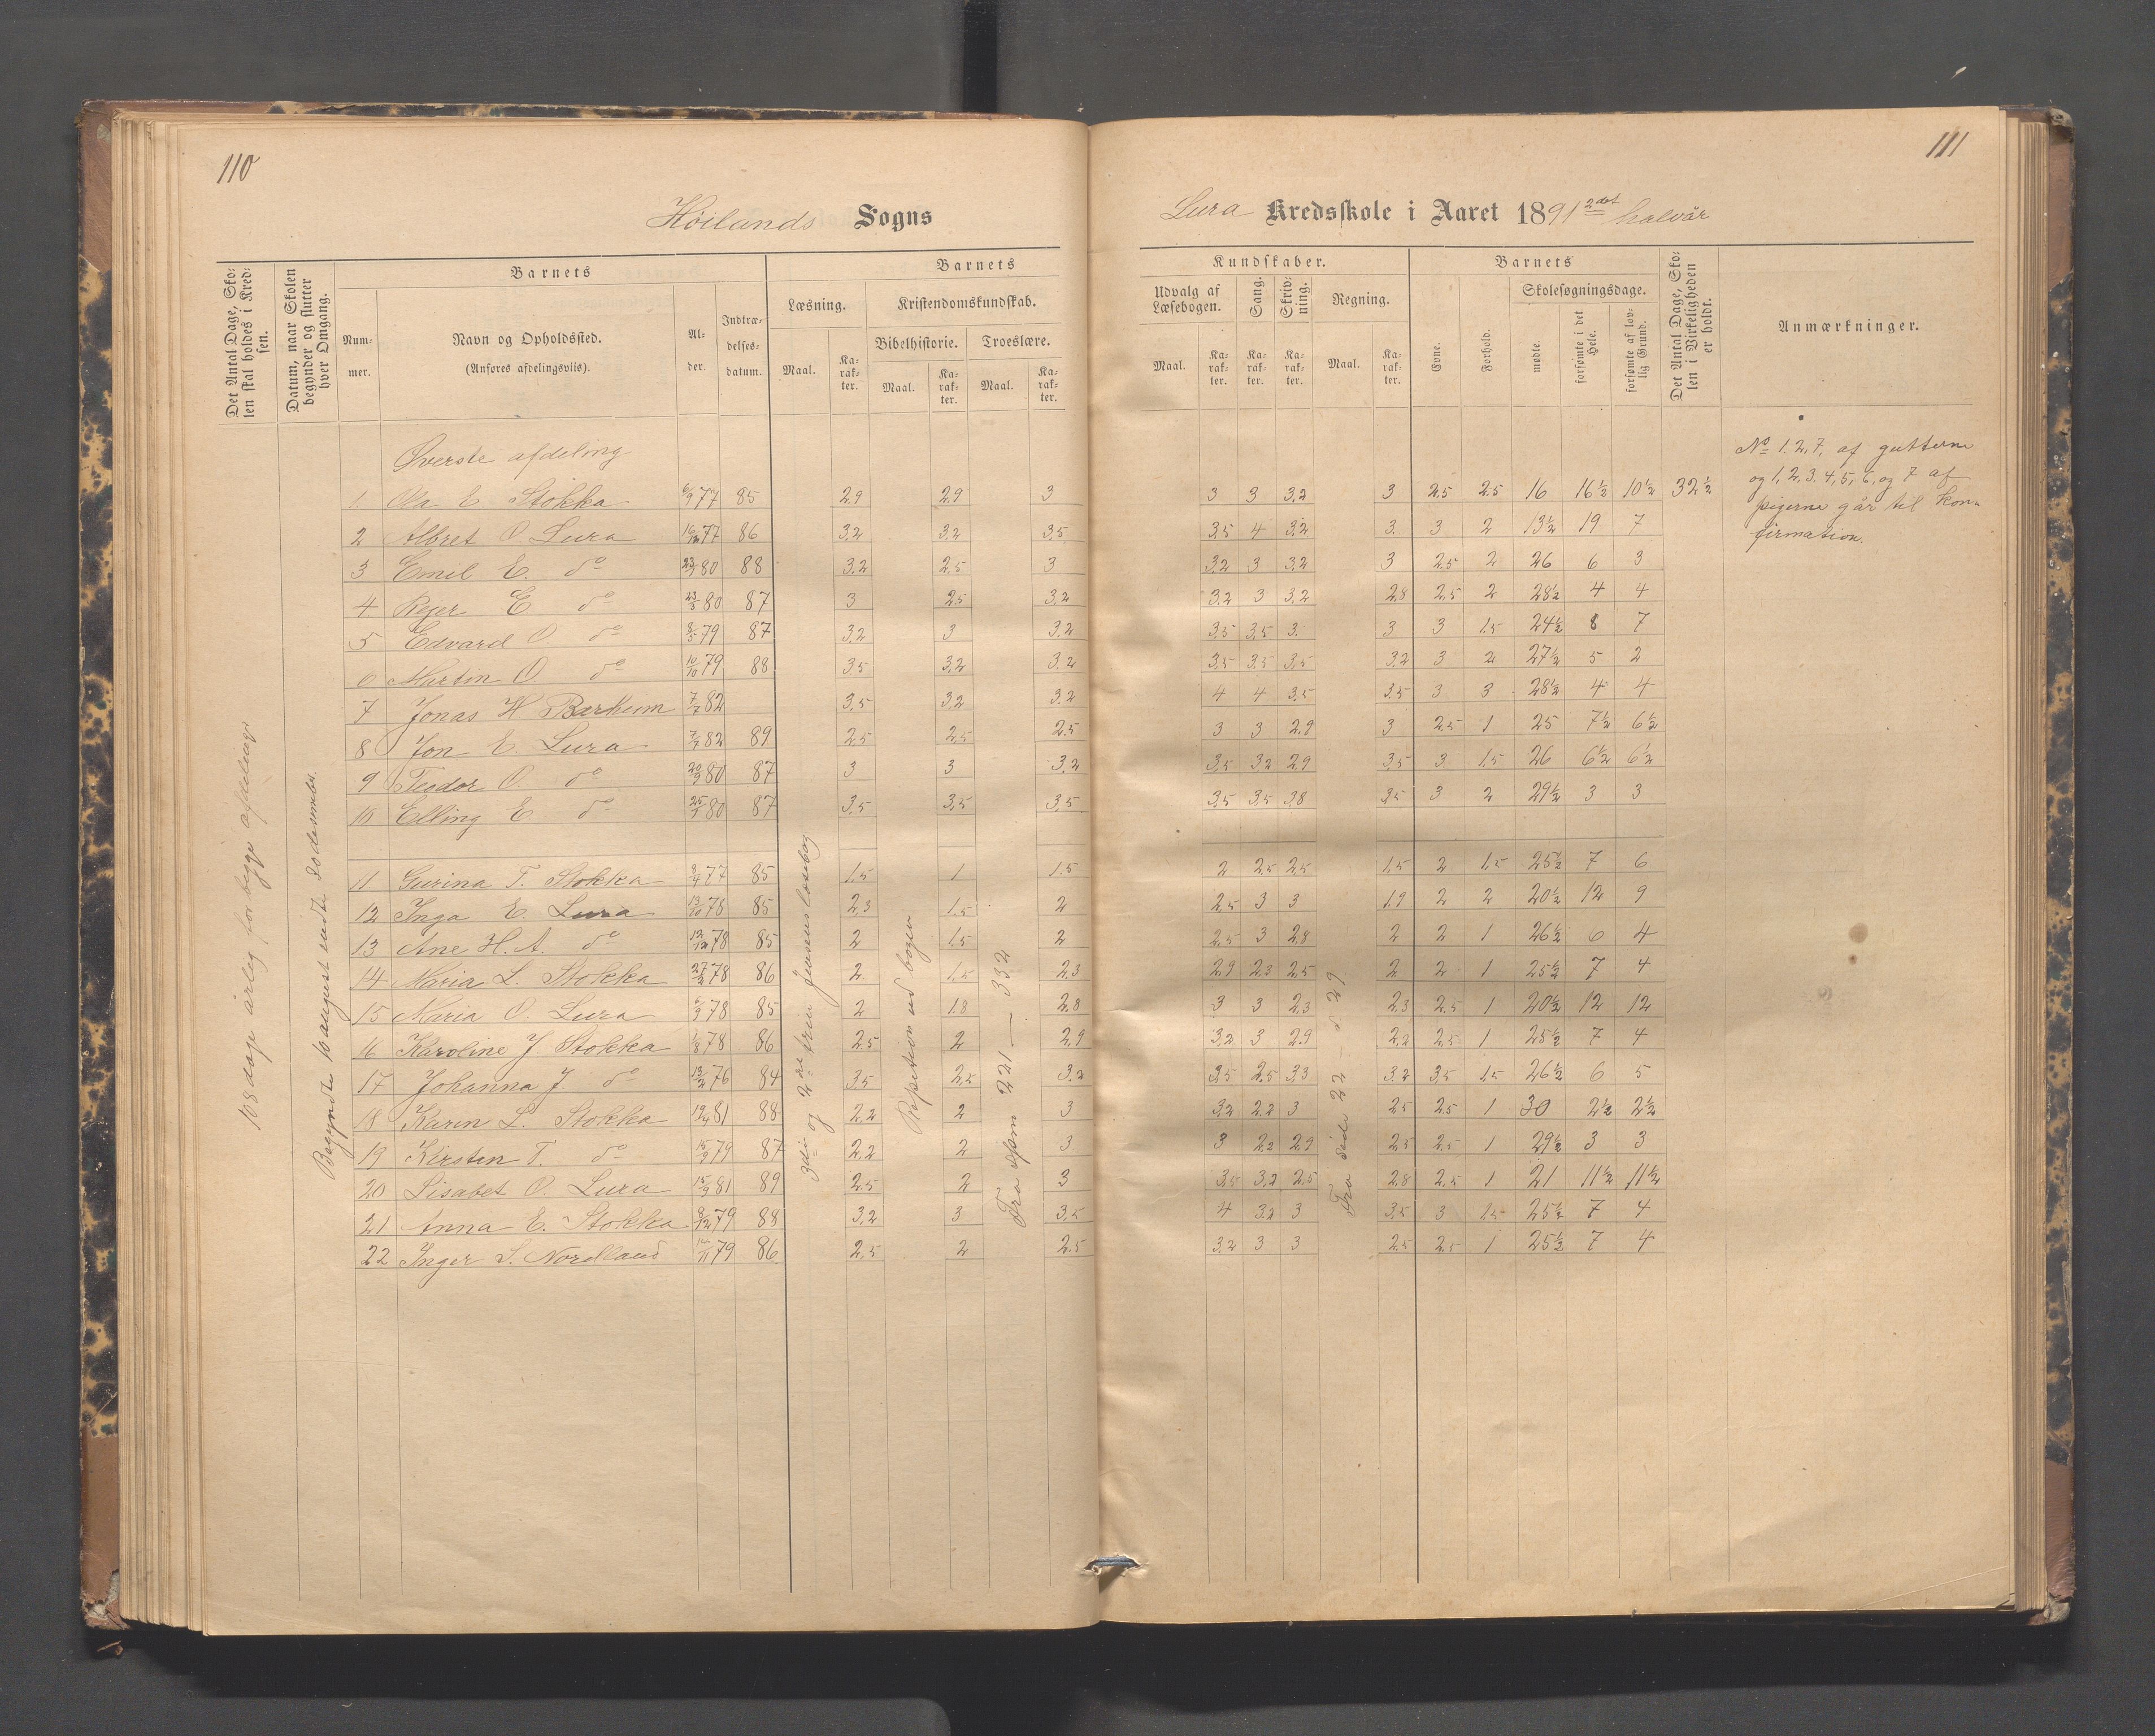 110
Höilands Sogns
Det Antal Dage, Skolen skal holdes i Kredsen.
Datum, naar Skolen begynder og slutter hver Omgang.
Barnets
Nummer.
Navn og Opholdssted.
(Anføres afdelingsvis).
Alder.
Indtrædelsesdatum.
Barnets
Læsning.
Maal.
Karakter.
Kristendomskundskab.
Bibelhistorie.
Maal.
Karakter.
Troeslære.
Maal.
Karakter.
108 dage årleg for begge afdelinger
Begyndte 10 august endte 2 desember.
3die og 2det trin Jensens læsebog
Repetition ud bogen
Fra spm 221 — 332
Øverste afdeling
1 Ola E Stokka 6/9 77 85 2.9 2.9 3
2 Albret O. Lura 16/12 77 86 3.2 3.2 3.5
3 Emil E. do 23/7 80 88 3.2 2.5 3
4 Reier E do 23/5 80 87 3 2.5 3.2
5 Edvard O do 8/5 79 87 3.2 3 3.2
6 Martin O do 10/10 79 88 3.5 3.2 3.2
7 Jonas H Bærheim 7/7 82 3.5 3.2 3.2
8 Jon E. Lura 7/7 82 89 2.5 2.5 2.5
9 Teodor O. do 20/9 80 87 3 3 3.2
10 Elling E do 25/9 80 87 3.5 3.5 3.5
11 Gurina T. Stokka 8/4 77 85 1.5 1 1.5
12 Inga E. Lura 13/10 78 85 2.3 1.5 2
13 Ane H. A. do 12/12 78 85 2 1.5 2
14 Maria L. Stokka 27/2 78 86 2 1.5 2.3
15 Maria O. Lura 6/9 78 85 2 1.8 2.8
16 Karoline J. Stokka 1/8 78 86 2.5 2 2.9
17 Johanna J. do 13/2 76 84 3.5 2.5 3.2
18 Karin L. Stokka 12/4 81 88 2.2 2 3
19 Kirsten T. do 15/9 79 87 2.2 2 3
20 Lisabet O. Lura 15/9 81 89 2.5 2 3
21 Anna E. Stokka 8/12 79 88 3.2 3 3.5
22 Inger S. Nordland 79 86 2.5 2 2.5
111
Lura Kredsskole i Aaret 1891 2det halvår
Kundskaber.
Udvalg af Læsebogen.
Maal.
Karakter.
Sang.
Karakter.
Skrivning.
Karakter.
Regning.
Maal.
Karakter.
Barnets
Evne.
Forhold.
Skolesøgningsdage.
mødte.
forsømte i det Hele.
forsømte af lovlig Grund.
Det Antal Dage, Skolen i Virkeligheden er holdt.
Anmærkninger.
Fra side 22 - 29
3 3 3.2 3 2.5 2.5 16 16½ 10½ 32½
3.5 4 3.2 3. 3 2 13½ 19 7
3.2 3 3.2 3 2.5 2 26 6 3
3.2 3 3.2 2.8 2.5 2 28½ 4 4
3.5 3.5 3. 3 3 1.5 24½ 8 7
3.5 3.5 3.5 3.2 3 2 27½ 5 2
4 4 3.5 3.5 3 3 28½ 4 4
3 3 2.9 3 2.5 1 25 7½ 6½
3.5 3.2 2.9 3.5 3 1.5 26 6½ 6½
3.5 3.5 3.8 3.5 3 2 29½ 3 3
2 2.5 2.5 1.5 2 1.5 25½ 7 6
2.5 3 3 1.9 2 2 20½ 12 9
2.5 3 2.8 2 2 1 26½ 6 4
2.9 2.3 2.5 2 2 1 25½ 7 4
3 3 2.3 2.3 2.5 1 20½ 12 12
3.2 3 2.9 2.2 2.5 1 25½ 7 4
3.5 2.5 3.3 3.2 3.5 1.5 26½ 6 5
3.2 2.2 3 2.5 2.5 1 30 2½ 2½
3 2.2 2.9 2.5 2.5 1 29½ 3 3
3.5 3.2 2.5 2.8 2.5 1 21 11½ 11½
4 3.2 3 3.5 3 1.5 25½ 7 4
3.2 3 3 2.5 2.5 1 25½ 7 4
No 1. 2, 7, af gutterne
og 1, 2, 3, 4, 5, 6, og 7 af
pigerne går til kon-
firmation.